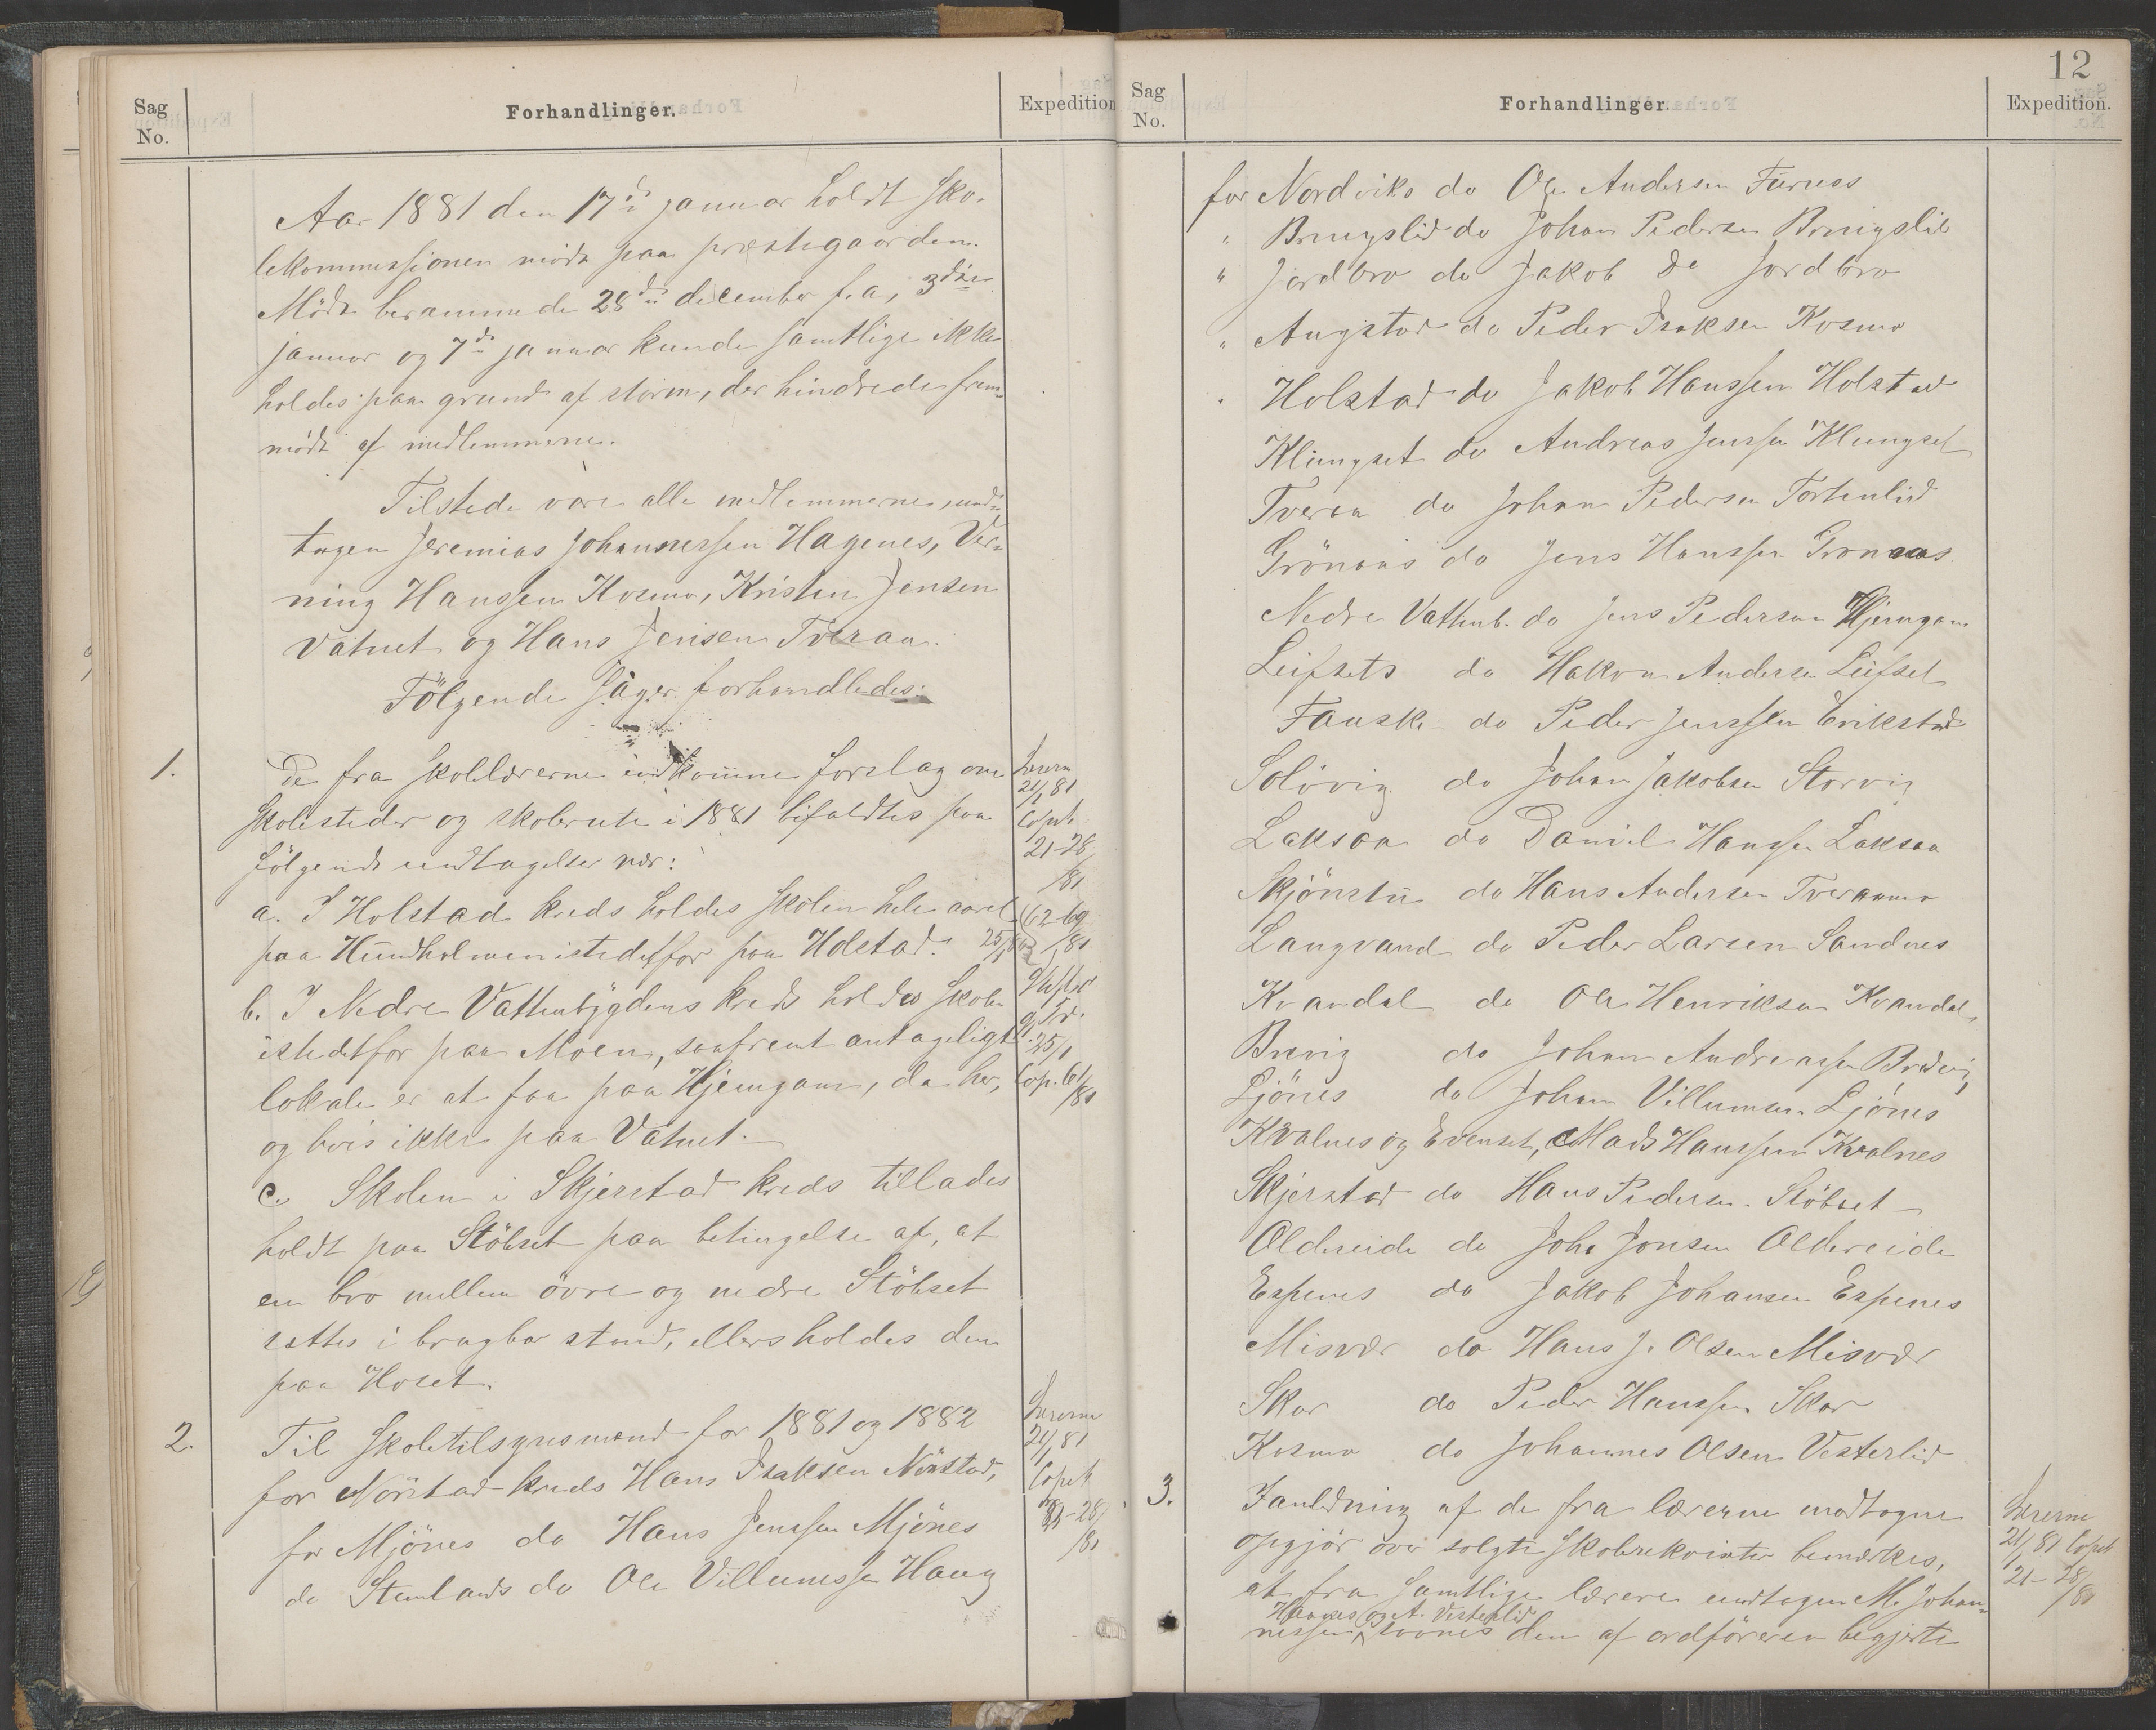 Sag
No.
Forhandlinger.
Expedition
Aar 1881 den 17de januar holdt sko-
lekommissionen möde paa præstegaarden.
Möde berammede 28de december f. a., 3die
januar og 7de januar kunde samtlige ikke
holdes paa grund af storm, der hindrede frem-
möde af medlemmerne.
Tilstede vare alle medlemmerne, und-
tagen Jeremias Johannessen Hagenes, Der-
ning Hanssen Kosmo, Kristen Jensen
Vatnet og Hans Jensen Tveraa.
Fölgende sager forhandledes:
1.
De fra skolelærerne indkomne forslag om
skolesteder og skolerute i 1881 bifaldtes paa
fölgende undtagelser nær:
a. I Holstad kreds holdes skolen hele aaret
paa Hundholmen istedetfor paa Holstad.
b. I Nedre Vattenbygdens kreds holdes skolen
istedetfor paa Moen, saafremt antageligt
lokale er at faa paa Hjemgam, da her,
og hvis ikke paa Vatnet.
c. Skolen i Skjerstad kreds tillades
holdt paa Stöbset paa betingelse af, at
en bro mellem övre og nedre Stöbset
sættes i brugbar stand, ellers holdes den
paa Hoset.
Lærerne
21/1 81
Copet
21-28
/81
62 69
/81
25/1
Cop. 61
/81
2.
Til skoletilsynsmænd for 1881 og 1882
for Nörstad kreds Hans Isaksen Nörstad,
for Mjönes do Hans Jenssen Mjönes
do Stemlands do Ole Villumssen Haug
Lærerne
21/1 81
Copet
21-28
/81
12
Sag
No.
Forhandlinger.
Expedition.
for Nordviks do Ole Andersen Furnes
" Bringslid do Johan Pedersen Bringslid
" Jordbro do Jakob Do Jordbro
" Augstad do Peder Isaksen Kosmo
" Holstad do Jakob Hanssen Holstad
Klungset do Andreas Jenssen Klungset
Tveraa do Johan Pedersen Tortenlid
Grönaas do Jens Hanssen Grönaas
Nedre Vattenb. do Jens Pedersen Hjemgam
Leifsets do Hakon Andersen Leifset
Fauske do Peder Jenssen Erikstad
Solövig do Johan Jakobsen Storvig
Laksaa do Daniel Hanssen Laksaa
Skjönstu do Hans Andersen Tveraamo
Langvand do Peder Larsen Sandnes
Kvandal do Ole Henriksen Kvandal
Brevig do Johan Andreassen Bredvig
Ljönes do Johan Villumsen Ljönes
Kvalnes og Evenset, Mads Hanssen Kvalnes
Skjerstad do Hans Pedersen Stöbset
Oldereide do Joh. Jonsen Oldereide
Espenes do Jakob Johansen Espenes
Misvær do Hans J. Olsen Misvær
Skar do Peder Hanssen Skar
Kosmo do Johannes Olsen Vesterlid
3.
I anledning af de fra lærerne modtagne
opgjör over solgte skolerekvisiter bemærkes,
at fra samtlige lærere undtagen M. Johan-
Haanes og A. Vesterlid
nessen savnes den af ordföreren begjærte
Lærerne
21/1 81 Copet
21-28
/81